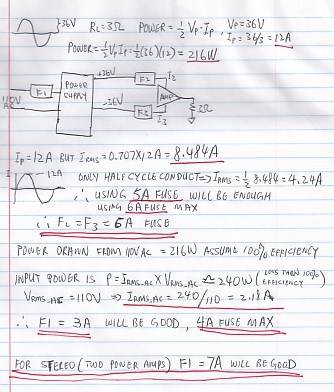 36V RL=3Ω POWER=½ VP·IP, VP=36V
IP=36/3=12A
POWER=½VPIP=½(36)(12)=216W
+36V F2 I2
F1 POWER SUPPLY AMP
110V AC -36V F3 I3 3Ω
IP=12A BUT IRMS=0.707X12A=8.484A
I 12A ONLY HALF CYCLE CONDUCT⇒IRMS=½ 8.484=4.24A
∴ USING 5A FUSE WILL BE ENOUGH
USING 6A FUSE MAX
∴ F2=F3=6A FUSE
POWER DRAWN FROM 110VAC=216W ASSUME 100% EFFICIENCY
INPUT POWER IS P=IRMS_AC X VRMS_AC ≅ 240W (LESS THAN 100% EFFICIENCY)
VRMS_AC=110V ⇒ IRMS_AC=240/110=2.18A
∴ F1=3A WILL BE GOOD, 4A FUSE MAX
FOR STEREO (TWO POWER AMPS) F1=7A WILL BE GOOD